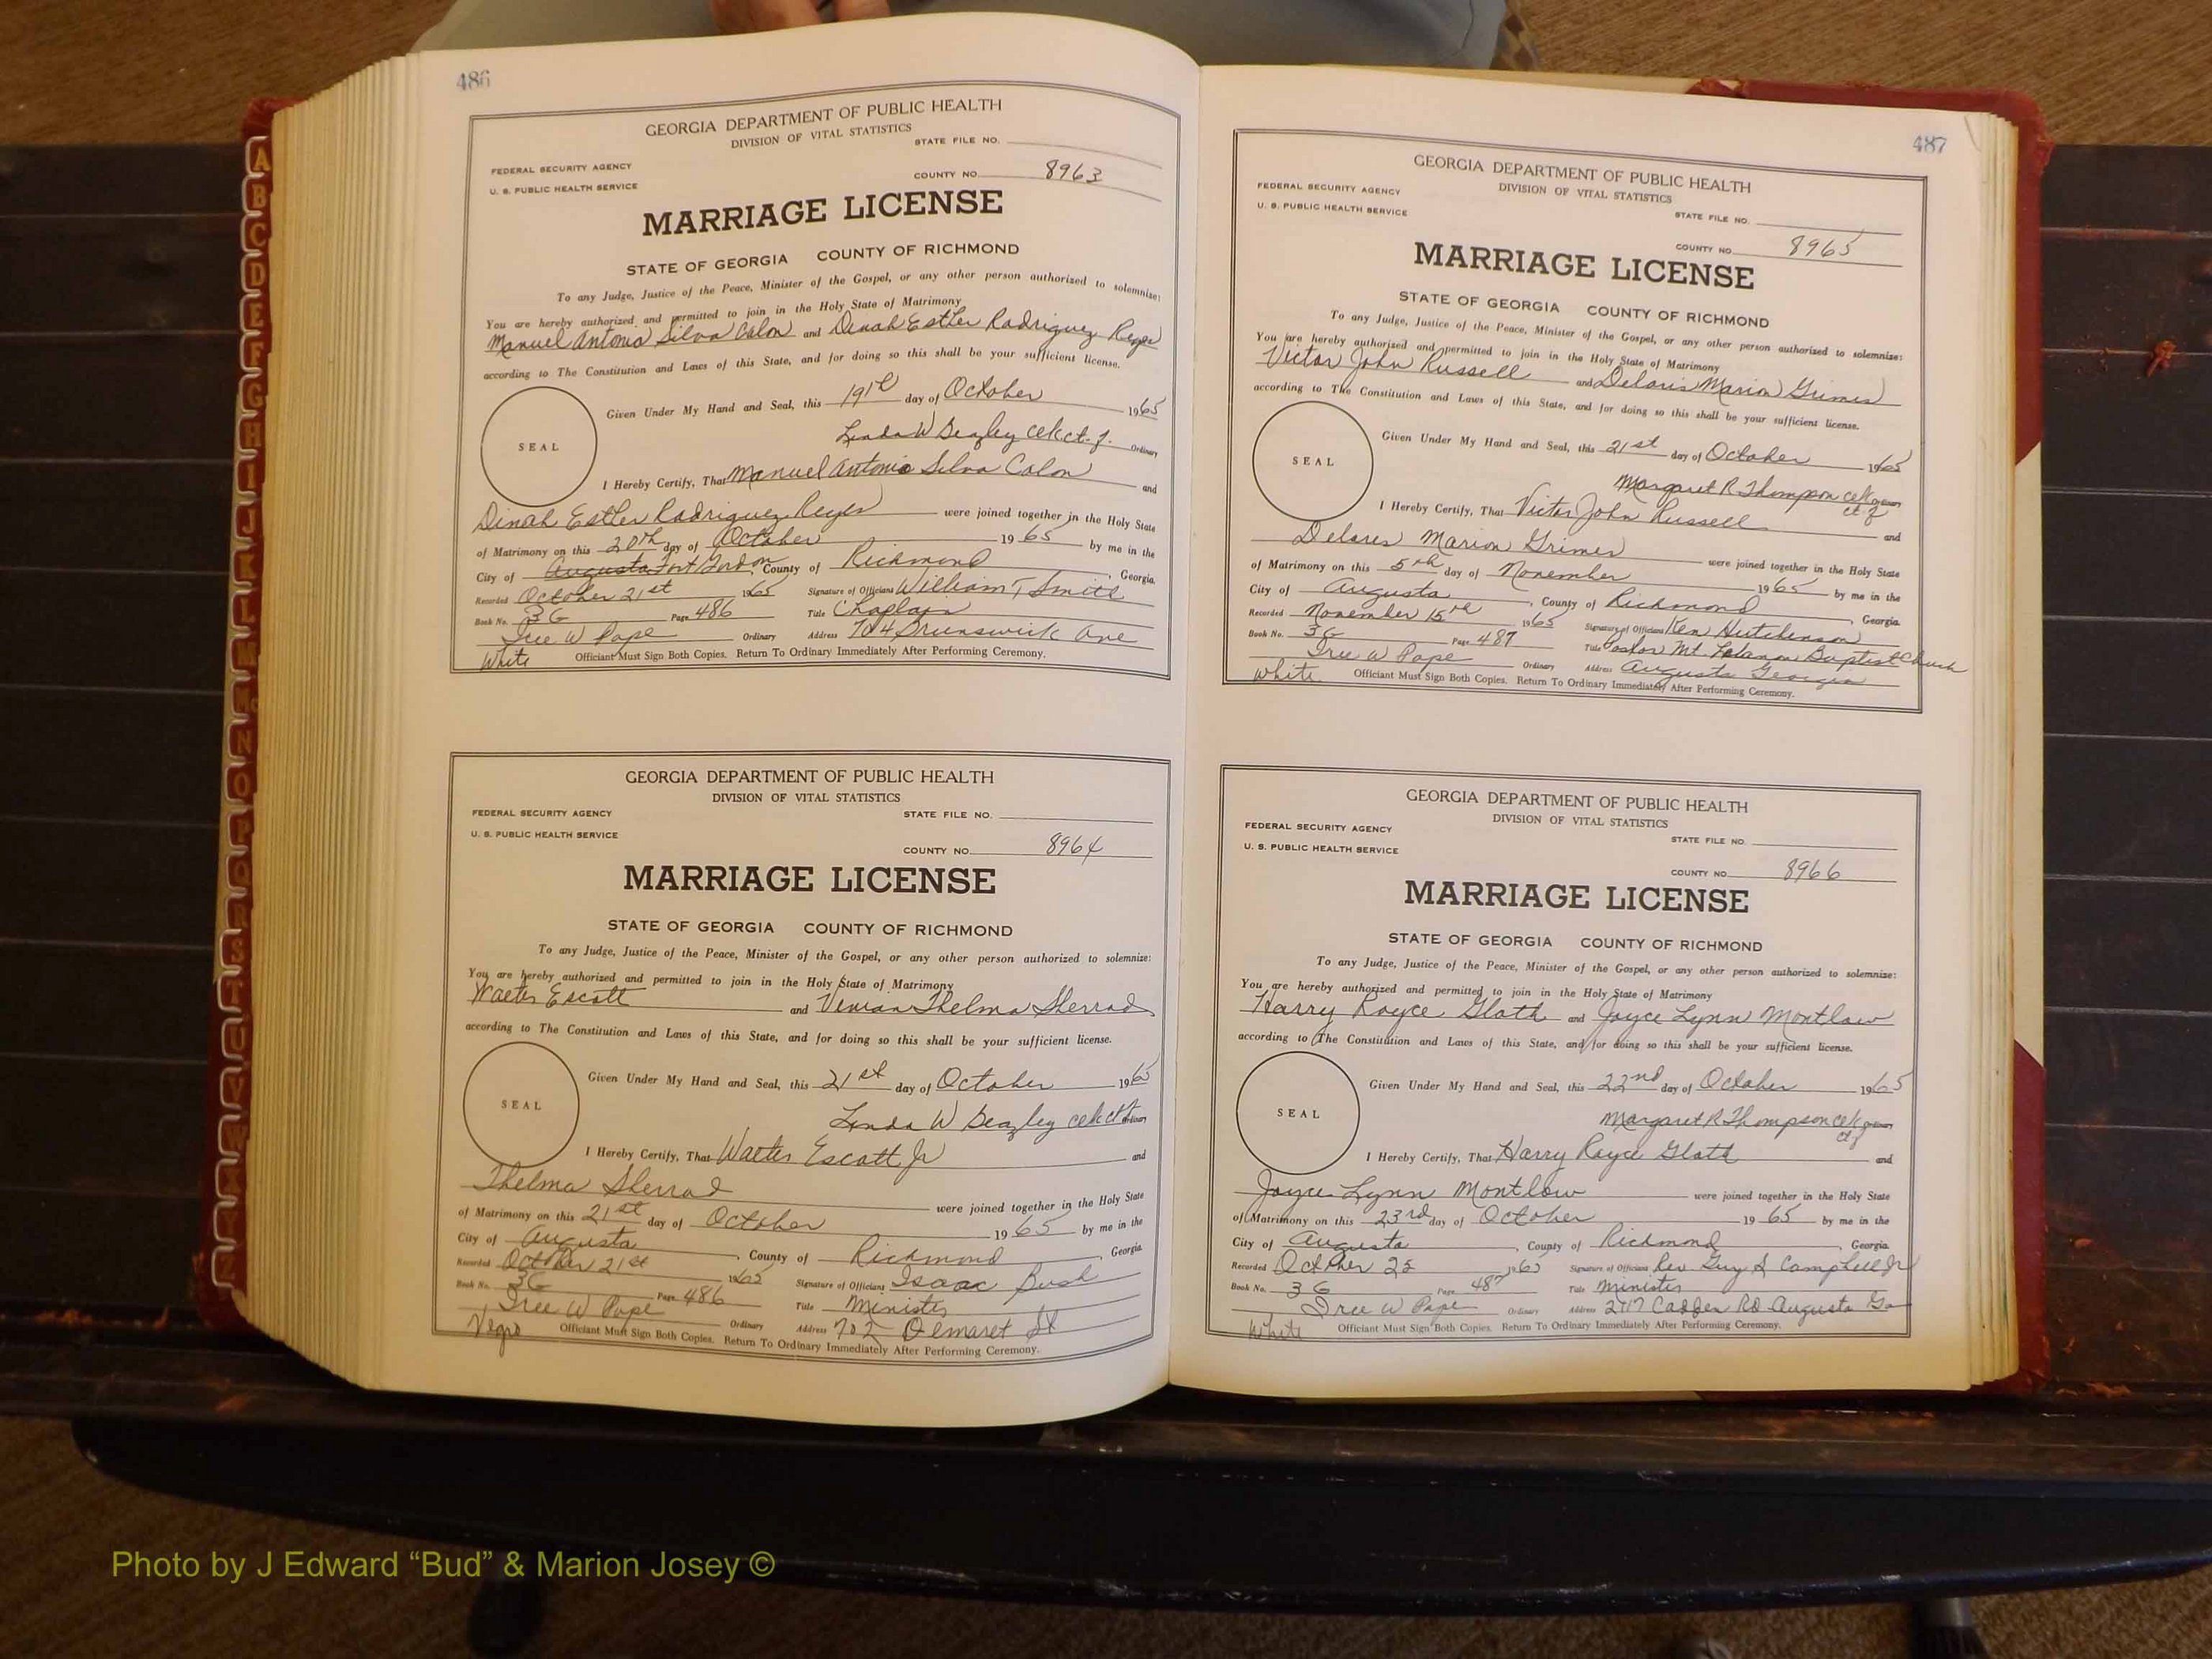 486
GEORGIA DEPARTMENT OF PUBLIC HEALTH
DIVISION OF VITAL STATISTICS
STATE FILE NO.
FEDERAL SECURITY AGENCY
U. S. PUBLIC HEALTH SERVICE
COUNTY NO. 8963
MARRIAGE LICENSE
STATE OF GEORGIA COUNTY OF RICHMOND
To any Judge, Justice of the Peace, Minister of the Gospel, or any other person authorized to solemnize:
You are hereby authorized and permitted to join in the Holy State of Matrimony
Manuel Antonio Silva Colon and Dinah Esther Rodriguez Reyes
according to The Constitution and Laws of this State, and for doing so this shall be your sufficient license.
SEAL
Given Under My Hand and Seal, this 19th day of October 1965
Linda W Beazley clk ct. Ordinary
I Hereby Certify, That Manuel Antonio Silva Colon and
Dinah Esther Rodriguez Reyes were joined together in the Holy State
of Matrimony on this 20th day of October 1965 by me in the
City of Augusta Fort Gordon County of Richmond, Georgia.
Recorded October 21st 1965 Signature of Officiant William T Smith
Book No. 3G Page 486 Title Chaplain
Iree W Pope Ordinary Address 704 Brunswick Ave
White Officiant Must Sign Both Copies. Return To Ordinary Immediately After Performing Ceremony.
GEORGIA DEPARTMENT OF PUBLIC HEALTH
DIVISION OF VITAL STATISTICS
FEDERAL SECURITY AGENCY STATE FILE NO.
U. S. PUBLIC HEALTH SERVICE
COUNTY NO. 8964
MARRIAGE LICENSE
STATE OF GEORGIA COUNTY OF RICHMOND
To any Judge, Justice of the Peace, Minister of the Gospel, or any other person authorized to solemnize:
You are hereby authorized and permitted to join in the Holy State of Matrimony
Walter Escott and Vivian Thelma Sherrod
according to The Constitution and Laws of this State, and for doing so this shall be your sufficient license.
SEAL
Given Under My Hand and Seal, this 21st day of October 1965
Linda W Beazley clk ct Ordinary
I Hereby Certify, That Walter Escott Jr and
Thelma Sherrod were joined together in the Holy State
of Matrimony on this 21st day of October 1965 by me in the
City of Augusta, County of Richmond, Georgia
Recorded October 21st 1965 Signature of Officiant Isaac Bush
Book No. 3G Page 486 Title Minister
Iree W Pope Ordinary Address 702 Demaret St
Negro Officiant Must Sign Both Copies. Return To Ordinary Immediately After Performing Ceremony.
487
GEORGIA DEPARTMENT OF PUBLIC HEALTH
DIVISION OF VITAL STATISTICS
FEDERAL SECURITY AGENCY
U. S. PUBLIC HEALTH SERVICE
STATE FILE NO.
COUNTY NO. 8965
MARRIAGE LICENSE
STATE OF GEORGIA COUNTY OF RICHMOND
To any Judge, Justice of the Peace, Minister of the Gospel, or any other person authorized to solemnize:
You are hereby authorized and permitted to join in the Holy State of Matrimony
Victor John Russell and Deloris Marion Grimes
according to The Constitution and Laws of this State, and for doing so this shall be your sufficient license.
SEAL
Given Under My Hand and Seal, this 21st day of October 1965
Margaret R Thompson clk Ordinary
I Hereby Certify, That Victor John Russell and
Delores Marion Grimes were joined together in the Holy State
of Matrimony on this 5th day of November 1965 by me in the
City of Augusta, County of Richmond, Georgia
Recorded November 15th 1965 Signature of Officiant Ken Hutchenson
Book No. 3G Page 487 Title Pastor Mt. Lebanon Baptist Church
Iree W Pope Ordinary Address Augusta Georgia
White Officiant Must Sign Both Copies. Return To Ordinary Immediately After Performing Ceremony.
GEORGIA DEPARTMENT OF PUBLIC HEALTH
DIVISION OF VITAL STATISTICS
FEDERAL SECURITY AGENCY
U. S. PUBLIC HEALTH SERVICE
STATE FILE NO.
COUNTY NO. 8966
MARRIAGE LICENSE
STATE OF GEORGIA COUNTY OF RICHMOND
To any Judge, Justice of the Peace, Minister of the Gospel, or any other person authorized to solemnize:
You are hereby authorized and permitted to join in the Holy State of Matrimony
Harry Royce Glath and Joyce Lynn Montlow
according to The Constitution and Laws of this State, and for doing so this shall be your sufficient license.
SEAL
Given Under My Hand and Seal, this 22nd day of October 1965
Margaret R Thompson clk Ordinary
I Hereby Certify, That Harry Royce Glath and
Joyce Lynn Montlow were joined together in the Holy State
of Matrimony on this 23rd day of October 1965 by me in the
City of Augusta, County of Richmond, Georgia
Recorded October 25 1965 Signature of Officiant Rev Guy S Campbell Jr
Book No. 3G Page 487 Title Minister
Iree W Pope Ordinary Address Rd Augusta Ga
White Officiant Must Sign Both Copies. Return To Ordinary Immediately After Performing Ceremony.
A
B
C
D
E
F
G
H
I
J
K
L
M
Mc
N
O
P
Q
R
S
T
U
V
W
X
Y
Z
Photo by J Edward “Bud” & Marion Josey ©